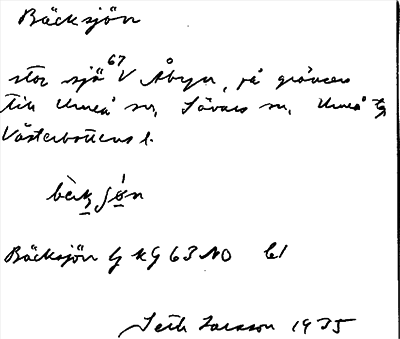 Bäcksjön
stor sjö 67 V Åbyn, på gränsen
till Umeå sn, Sävars sn, Umeå tg
Västerbottens l.
bèk jø̀n
Bäcksjön G kg 63 NO
Seth Larsson 1935